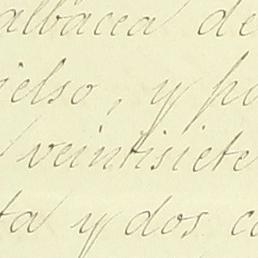 albacea de
ielso, y po
veintisiete
ta y dos c